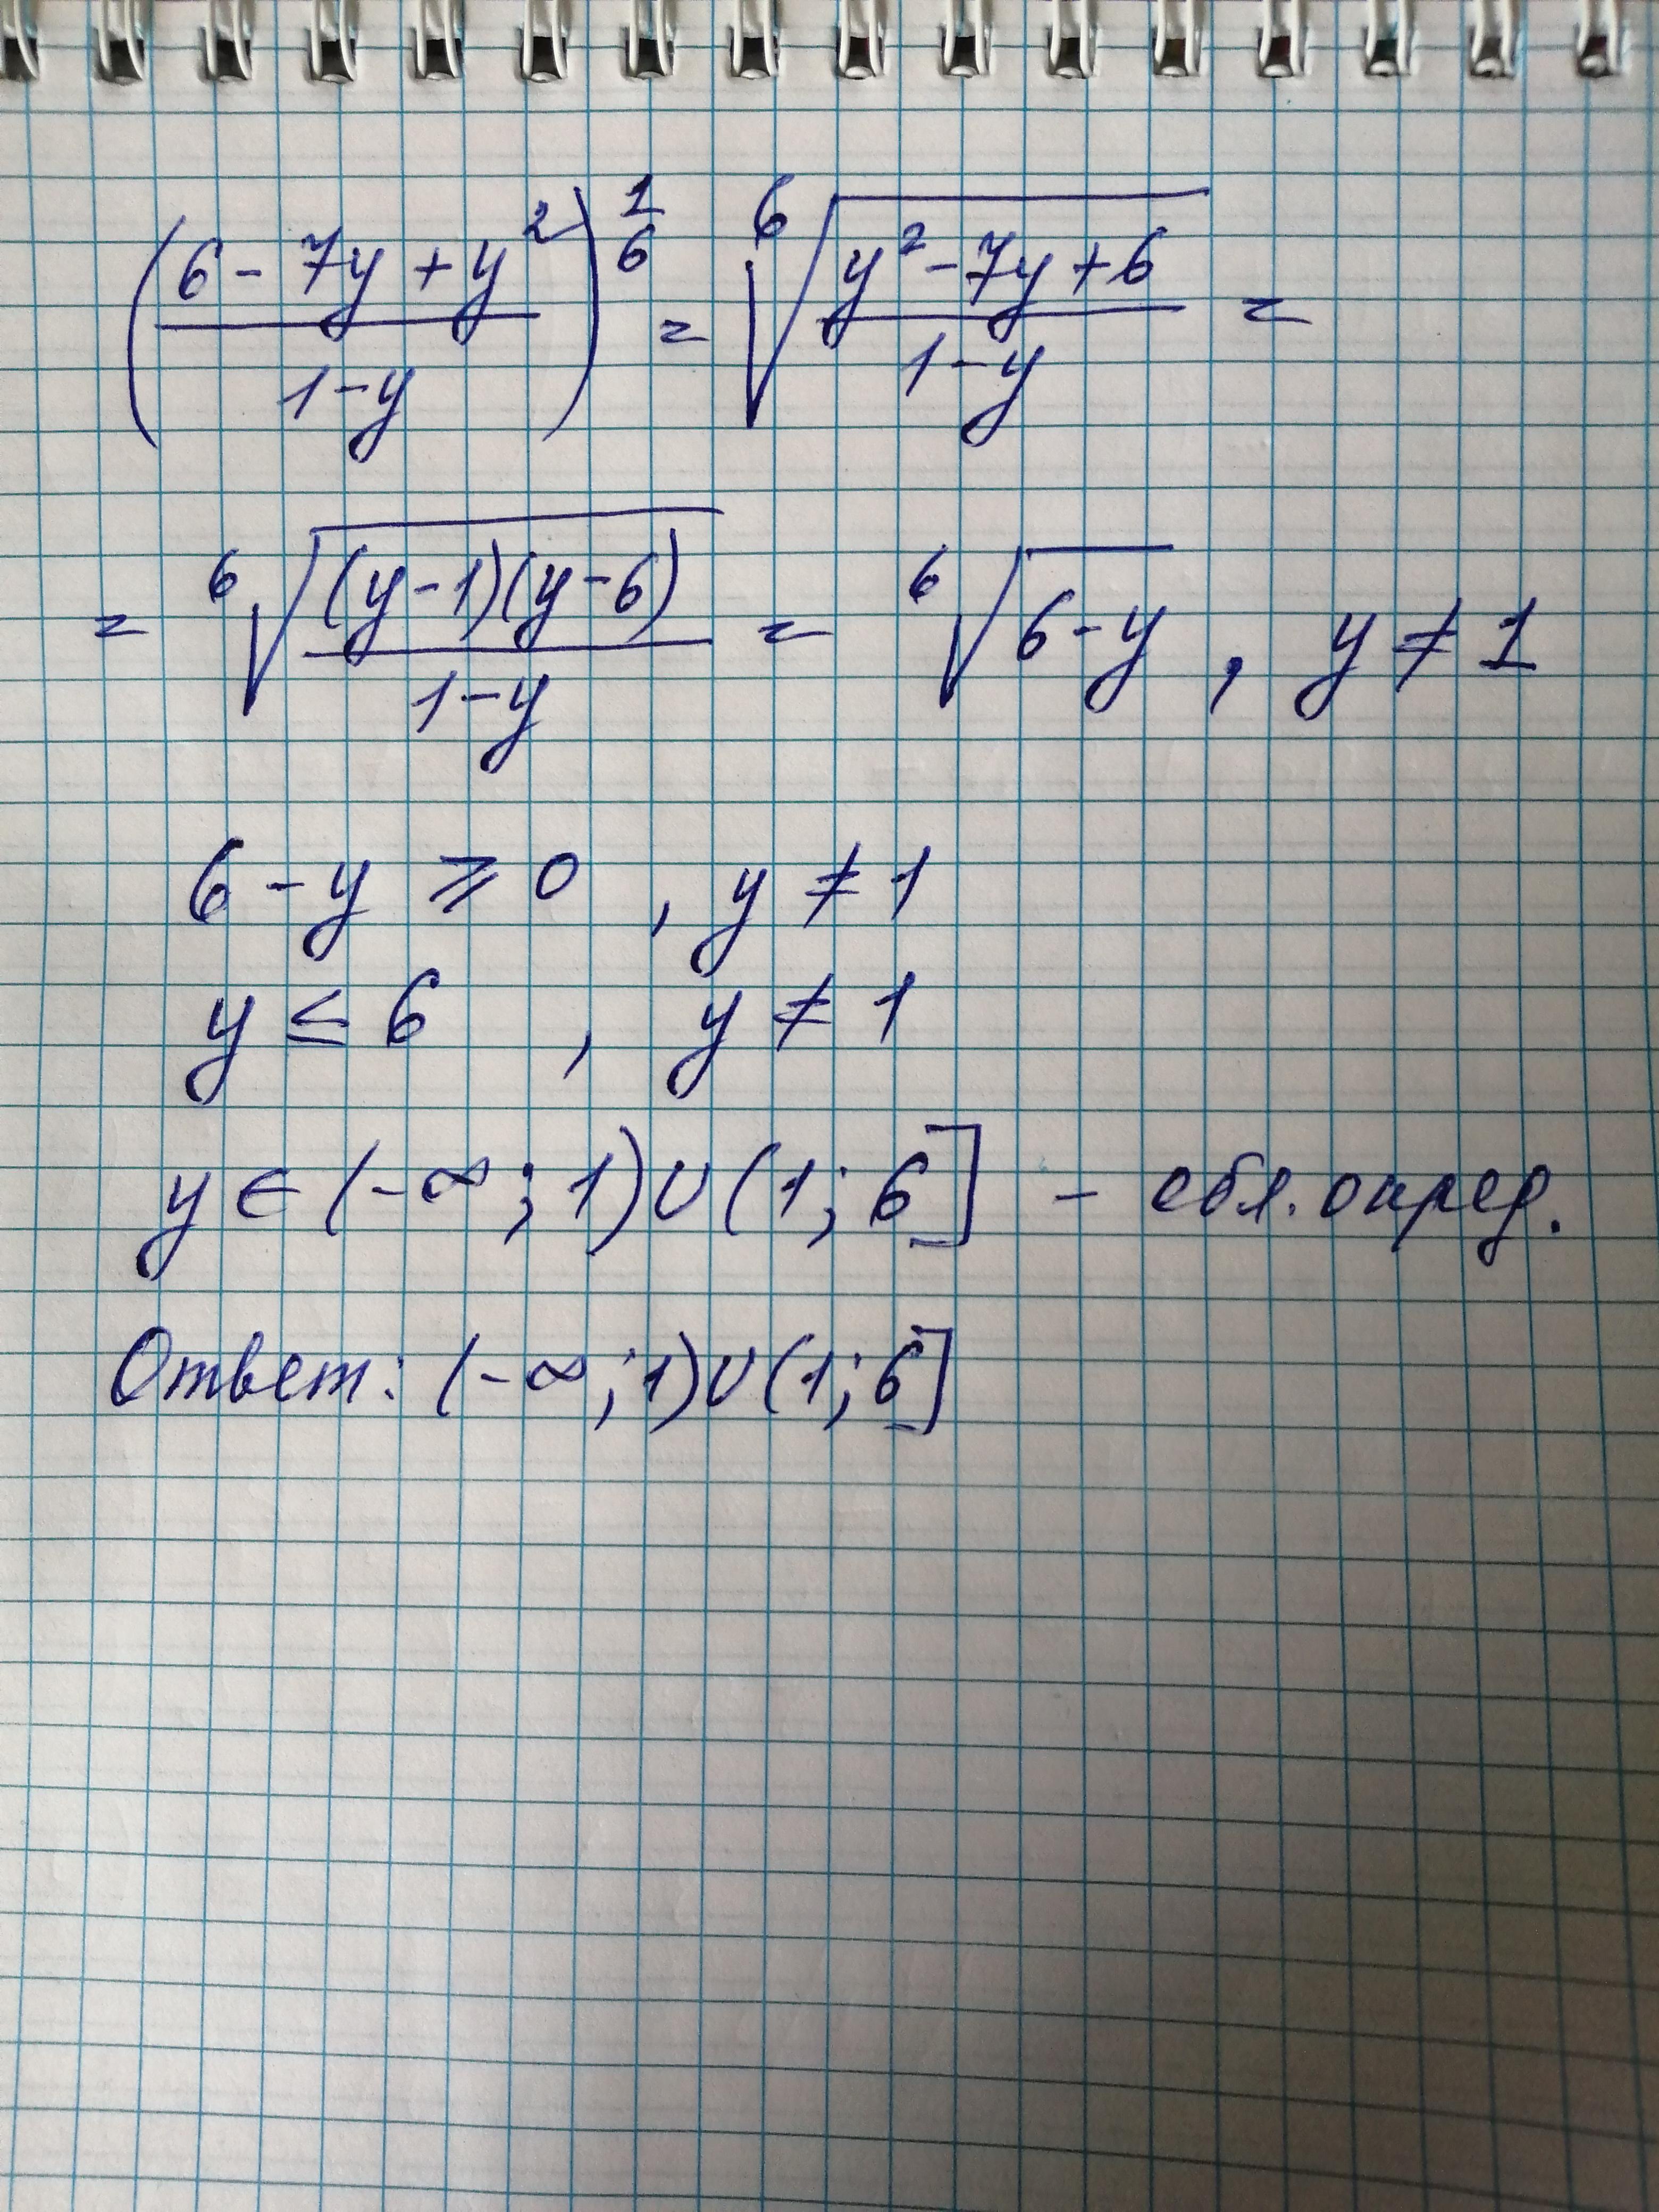 (\frac{6-7y+y^2}{1-y})^{\frac{1}{6}} = \sqrt[6]{\frac{y^2-7y+6}{1-y}} =
= \sqrt[6]{\frac{(y-1)(y-6)}{1-y}} = \sqrt[6]{6-y}, y ≠ 1
6-y ⩾ 0, y ≠ 1
y ≤ 6, y ≠ 1
y ∈ (-∞; 1)∪(1; 6] - обл. опред.
Ответ: (-∞; 1)∪(1; 6]